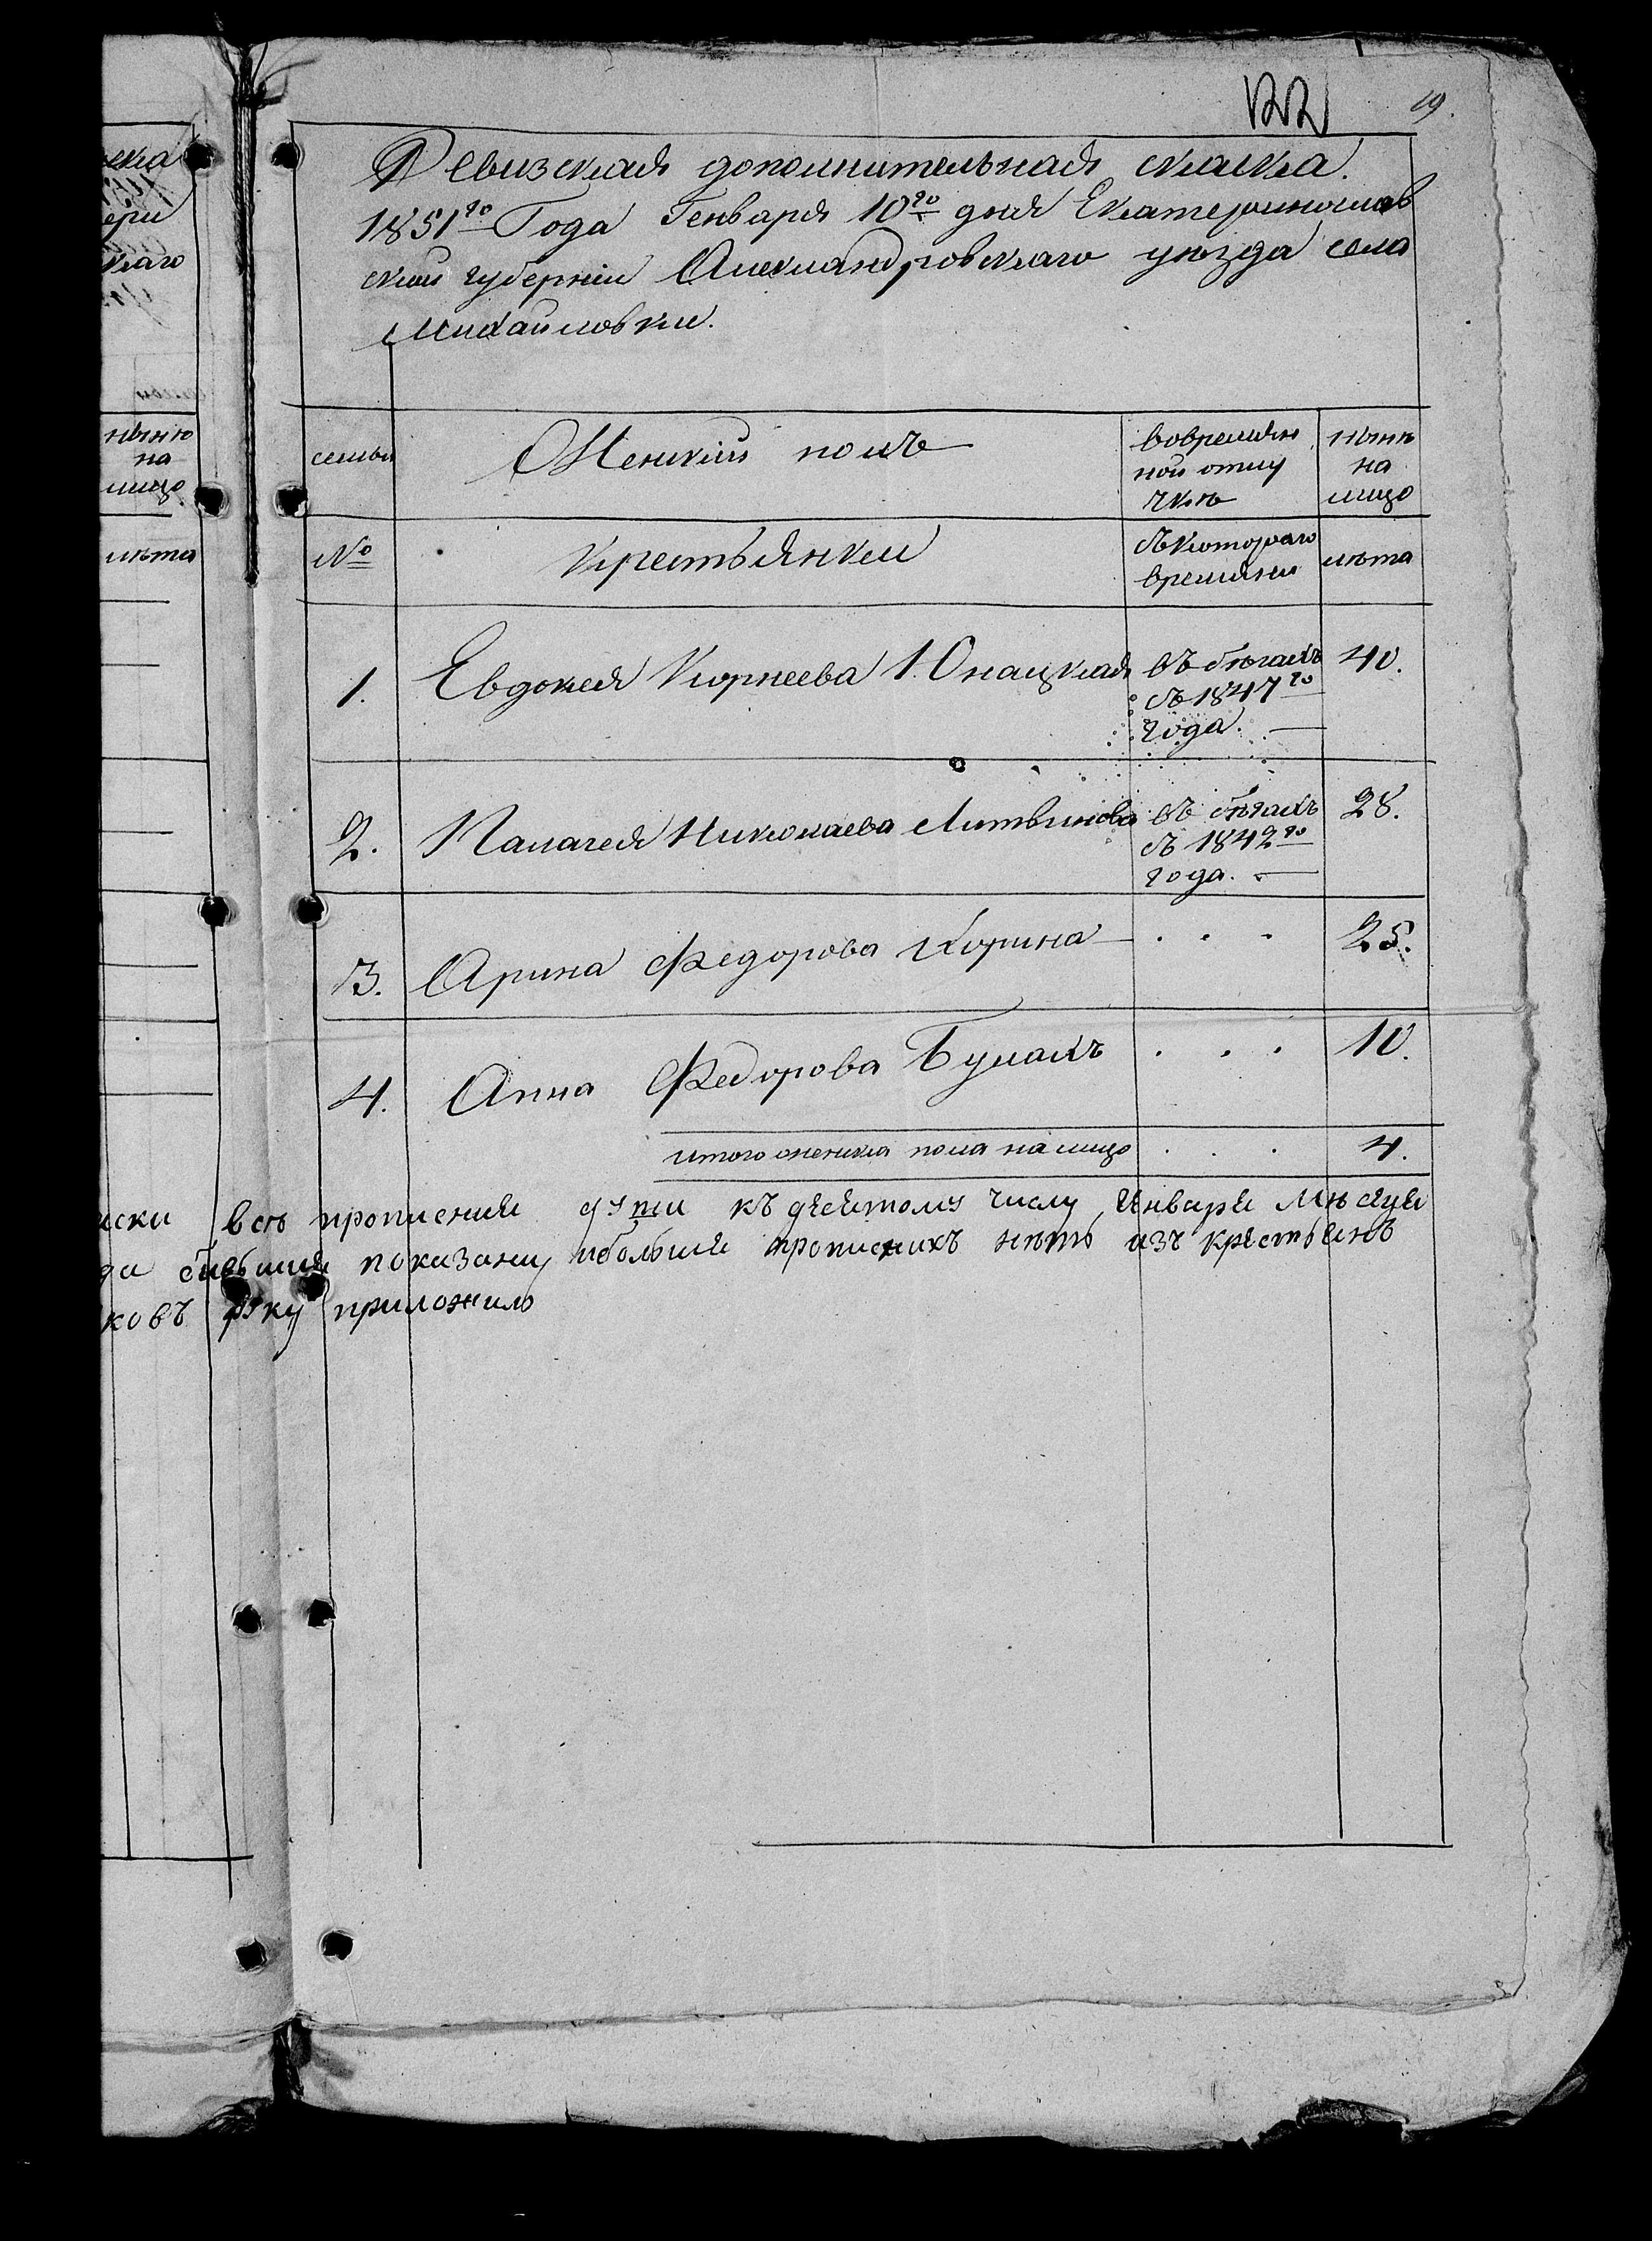 122 19.
Ревизская дополнительная скаска.
1851го Года Генваря 10го дня Екатеринослав
ской губернии Александровскаго уѣзда села
Михайловки.
семьи Женский полъ вовремян нынѣ
ной отлу на
чкѣ лицо
№ крестьянки съкотораго лѣта
времяни
1. Евдокея Корнеева Юнацкая въ бѣгахъ 40.
съ 1847го
года.
2. Палагея Николаева Литвинова въ бѣгахъ 28.
съ 1842го
года.
3. Арина Федорова Корина . . . 25.
4. Анна Федорова Булахъ . . . 10.
итого женска пола налицо . . . 4.
иски всѣ прописния души къ десятому числу Января Мѣсяця
да бившия показани, иболшия прописнихъ нѣтъ изъ крестьянъ
ковъ руку приложилъ
нынѣ
на
лицо
лѣта